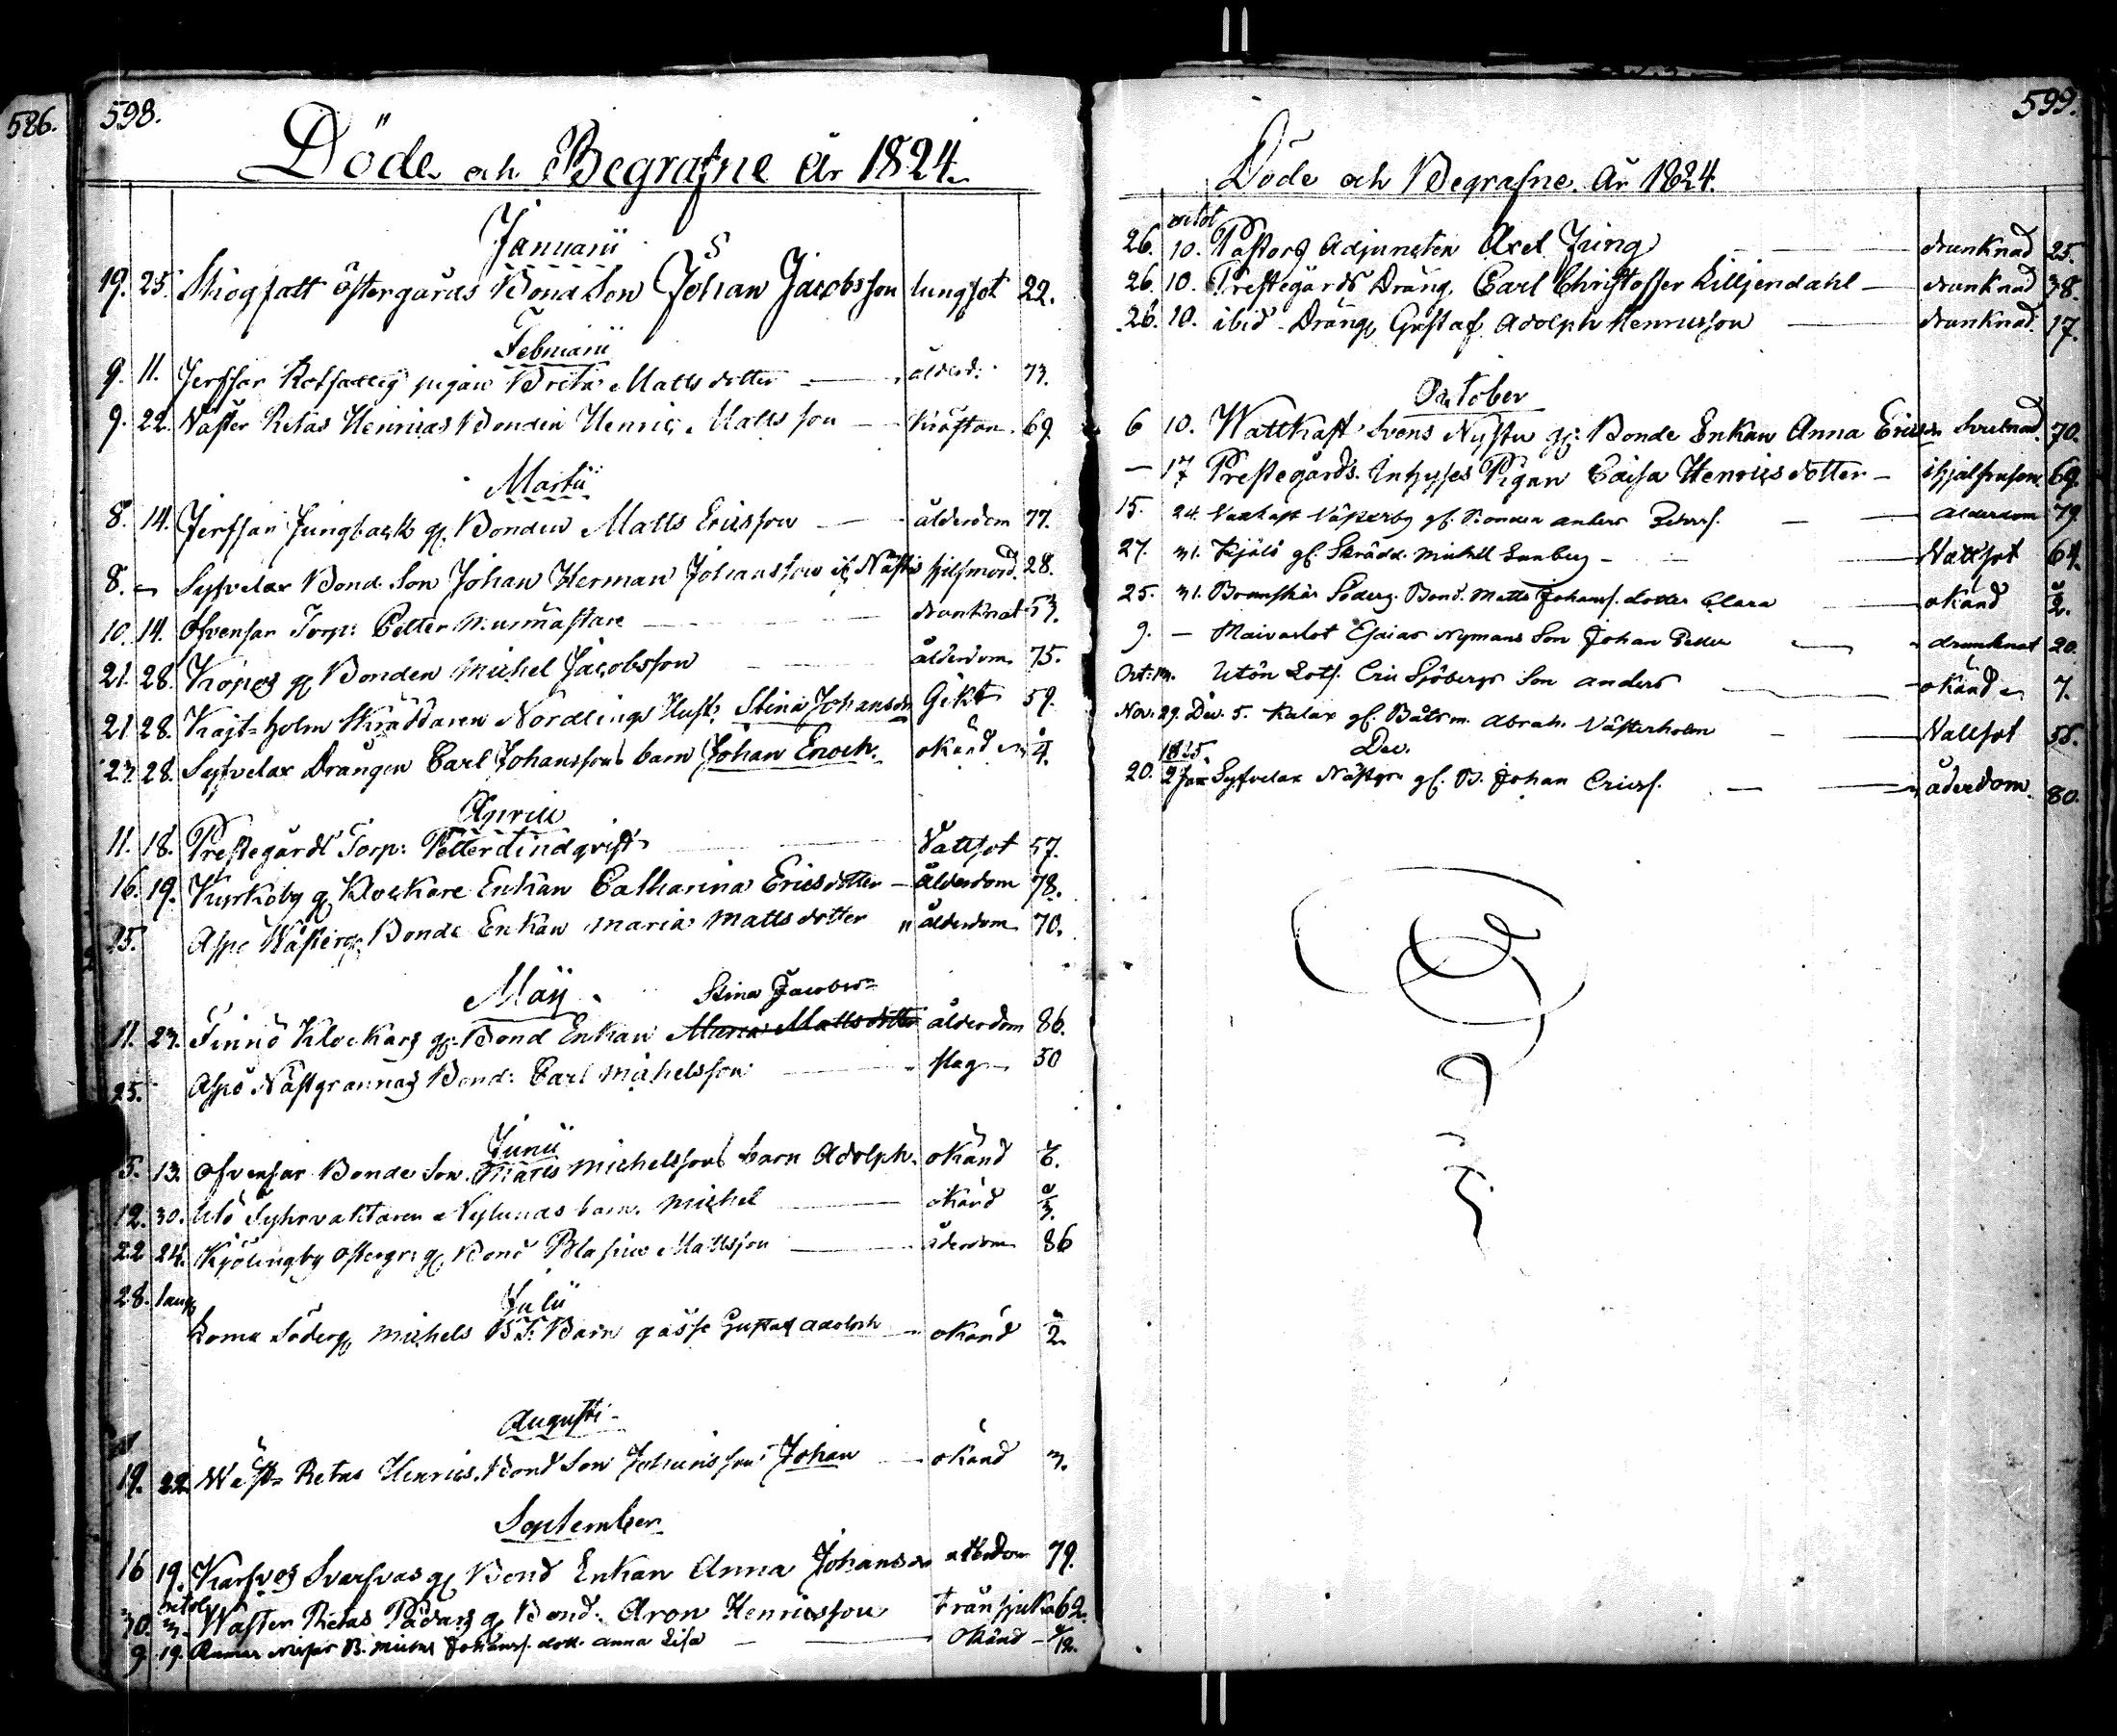 586.
598.
Döde och Begrafne År 1824.
Januarii
19. 25. Skogsatt Östergårds Bond Son Johan Jacobsson lungsot 22.
Februarii
9. 11. Jerssar pigan Brita Matts dotter ålderd: 73.
9. 22. Väster Retais Henricas Bonden Henric Matts son Kräftan. 69.
Martii
8. 14. Jerssar Jungback gl. Bonden Matts Ericsson ålderdom 77.
8. Syfvelax Bond Son Johan Herman Johansson sjelfmord. 28.
10. 14. Ofvensar Torp: Petter Murmästare drunknat 53.
21. 28. Köpos gl Bonden Michel Jacobsson ålderdom 75.
21 28. Kajt-holm Skräddaren Nordlings Hust. Stina Johansdr Gikt 59.
23 28. Syfvelax Drängen Carl Johanssons barn Johan Enoch. okänd 4.
Aprill
11. 18. Prestegårds Torp: Petter Lindqvist Vattsot 57.
16. 19. Kyrkoby gl Klockare Enkan Catharina Ericsdotter ålderdom 78.
25. Aspö Västerg Bonde Enkan Maria Mattsdotter ålderdom 70.
Maij
Stina Jacobsdr
11. 23. Finnö Klockars gl. Bond Enkan Maria Mattsdotter ålderdom 86.
25. Aspö Nästgrannas Bond: Carl Michelsson slag 50
Junii
5. 13. Ofvensar Bonde Son Matts Michelssons barn Adolph. okänd 6.
12. 30. Utö Fyhrvaktaren Nylunds barn. Michel okänd 3.
22 24. Kjölingby Österg: gl. Bond Blasius Mattsson åderdom 86
28.
Julii
Roma Söderg Michels B S. Barn gåsse Gustaf Adolph okänd 2.
Augusti
19. 22. Wäst- Retais Henrics. Bond Son Johan okänd 3.
September
16 19. Karsvos Svarfvas gl Bond Enkan Anna Johansdr ålderdom 79.
octob
30. 3. Wäster Retais Pädars gl Bond: Aron Henricsson Trånsjuka 62.
9 19. B. Michel Johanss. dott. Anna Lisa Okänd 12.
599.
Döde och Begrafne År 1824.
octob
26. 10. Pastors Adjuncten Axel Jung drunknad 25.
26. 10. Prestegårds Dräng. Carl Christoffer Lilljendahl drunknad 38.
26. 10. ibid Dräng Gustaf Adolph Henricsson drunknad 17.
October
6 10. Wattkast Svens Nystu gl: Bonde Enkan Anna Ericsdr Svulnad. 70.
— 17 Prestegårds. Inhyses Pigan Caisa Henricsdotter ihjälfrusen 69.
15. 24. Vattkast Västerby gl. Bonden Anders Peterss. ålderdom 79.
27. 31. Kjälö gl. Skrädd. Michell Lanberg Vattsot 64.
25. 31. Bromskär Söderg. Bond. Matts Johanss. dotter Clara okänd 2.
9. — Maivaslot Esaias Nymans Son Johan Petter drunknat 20.
Oct: 13. Utön Lots. Eric Sjöbergs Son Anders okänd 7.
Nov. 29. Dec. 5. Kalax gl. Båtsm. Abrah. Västerholm Vattsot 55.
1825. Dec.
20. 2 Jan Syfvelax Nästgrn gl. B. Johan Ericss. åderdom. 80.